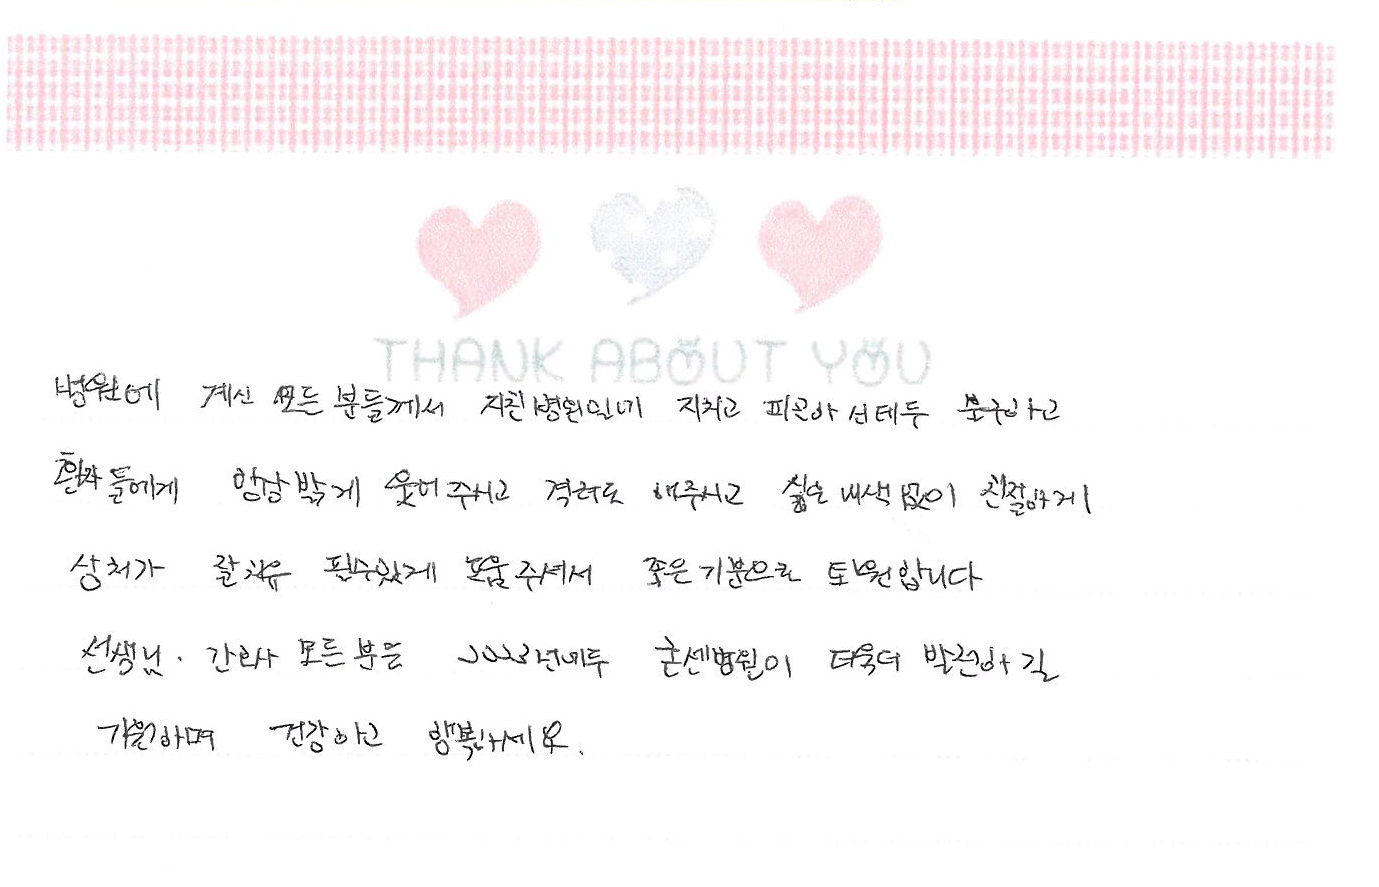 THANK ABOUT YOU
병원에 계신 모든 분들께서 지친병원일에 지치고 피곤하신테두 불구하고
환자들에게 항상 밝게 웃어주시고 격려도 해주시고 싫은내색없이 친절하게
상처가 잘치유 될수있게 도움주셔서 좋은기분으로 퇴원합니다
선생님. 간호사 모든분들 2023년에두 굿센병원이 더욱더 발전하길
기원하며 건강하고 행복하세요.